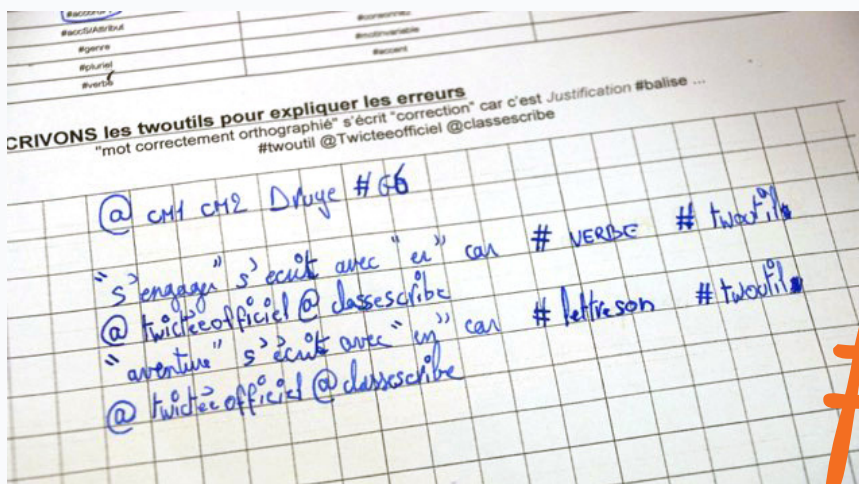 #accS/Attribut
#genre
#pluriel
#verbe
#consonnes
#motinvariable
#accent
CRIVONS les twoutils pour expliquer les erreurs
"mot correctement orthographié" s'écrit "correction" car c'est Justification #balise ...
#twoutil @Twicteeofficiel @classescribe
@ CM1 CM2 Druye #G6
"s'engager" s'écrit avec "er" car # VERBE # twoutils
@ twictéeofficiel @ classescribe
"aventure" s'écrit avec "en" car # lettreson # twoutils
@ twictéeofficiel @ classescribe